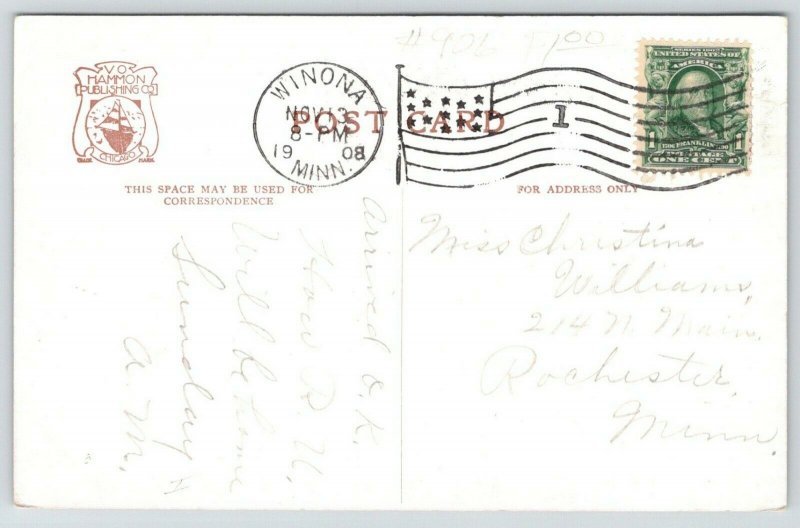 #906 $1.00
V O
HAMMON
PUBLISHING CO
CHICAGO
TRADE MARK
WINONA
NOV 13
8-PM
1908
MINN.
1
POST CARD
SERIES 1902
UNITED STATES OF
AMERICA
1 FRANKLIN 1
POSTAGE
ONE CENT
THIS SPACE MAY BE USED FOR
CORRESPONDENCE
FOR ADDRESS ONLY
Arrived O.K.
How R U.
Will be home
Sunday
A.M.
Miss Christina
Williams,
214 N. Main.
Rochester,
Minn.